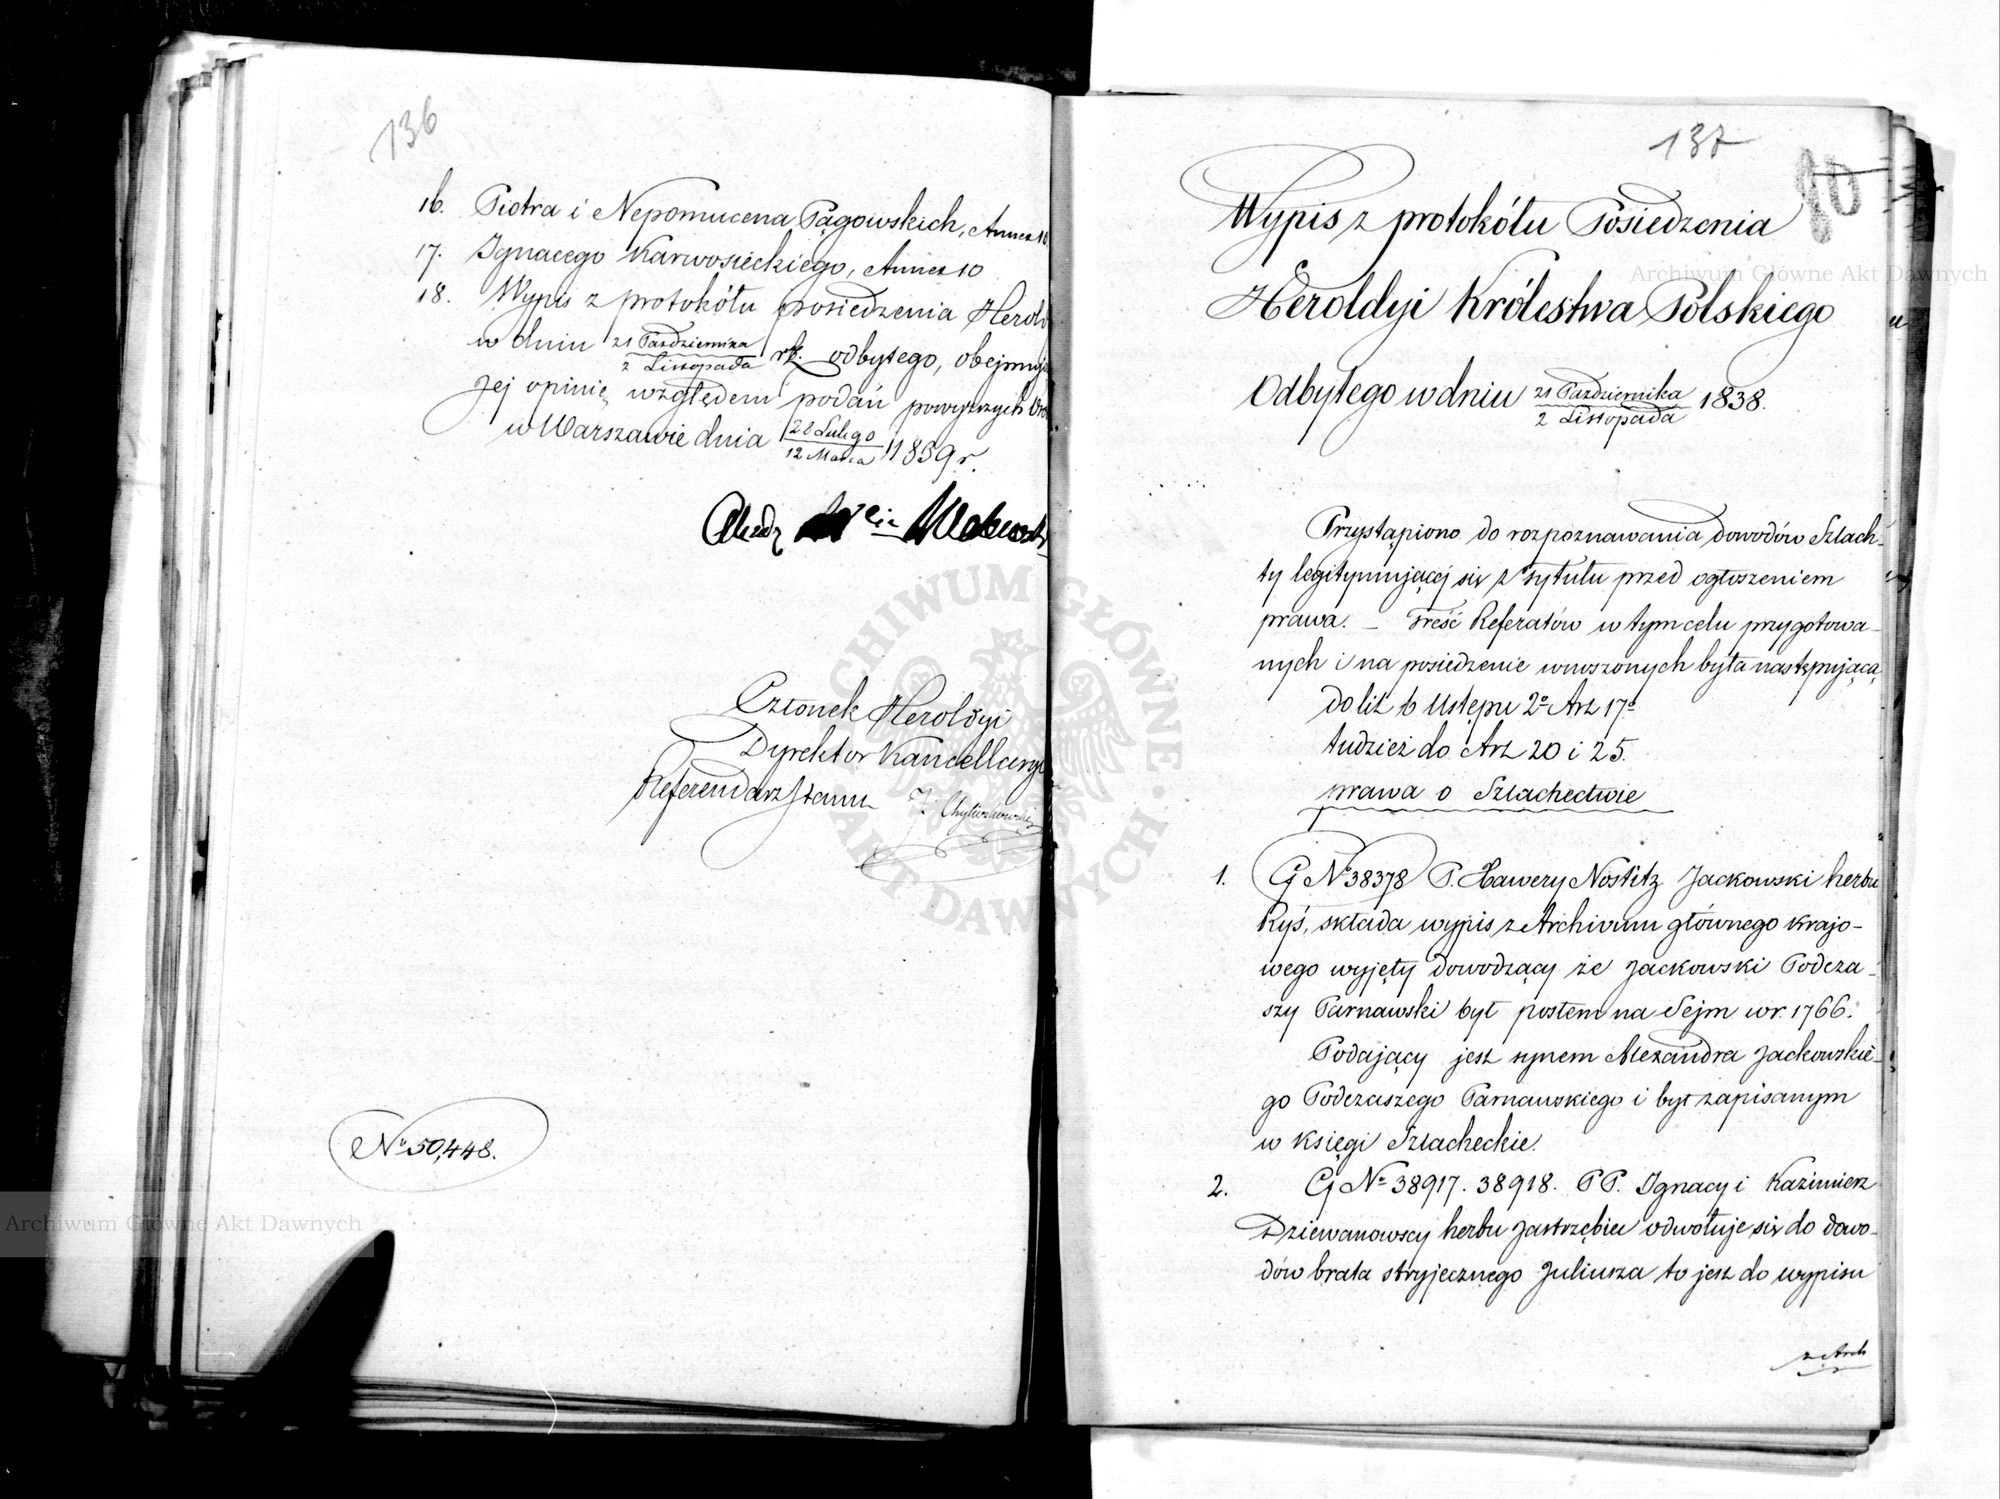 136
16. Piotra i Nepomucena Pągowskich, Annex 10
17. Ignacego Karwosieckiego, Annex 10
18. Wypis z protokółu posiedzenia Herold
w dniu 21 Października
2 Listopada rb. odbytego, obejmują
jej opinię względem podań powyższych
w Warszawie dnia 28 Lutego
12 Marca 1839 r.
Członek Heroldyi
Dyrektor Kancellaryi
Referendarz Stanu
No 50,448.
137
Wypis z protokółu Posiedzenia
Heroldyi Królestwa Polskiego
Odbytego w dniu 21 Października
2 Listopada 1838.
Przystąpiono do rozpoznawania dowodów Szlach-
ty legitymującej się z tytułu przed ogłoszeniem
prawa. – Treść Referatów w tym celu przygotowa-
nych i na posiedzenie wnoszonych była następująca
do lit b Ustępu 2o Art 17o
tudzież do Art 20 i 25.
prawa o Szlachectwie
1. G No 38378 P. Xawery Nostitz Jackowski herbu
Ryś, składa wypis z Archivum głównego krajo-
wego wyjęty dowodzący że Jackowski Podcza-
szy Parnawski był posłem na Sejm w r. 1766.
Podający jest synem Alexandra Jackowskie-
go Podczaszego Parnawskiego i był zapisanym
w księgi Szlacheckie.
2. G No 38917. 38918. PP. Ignacy i Kazimierz
Dziewanowscy herbu Jastrzębiec odwołuje się do dowo-
dów brata stryjecznego Juliusza to jest do wypisu
z Arch
Archiwum Główne Akt Dawnych
Archiwum Główne Akt Dawnych
ARCHIWUM GŁÓWNE AKT DAWNYCH